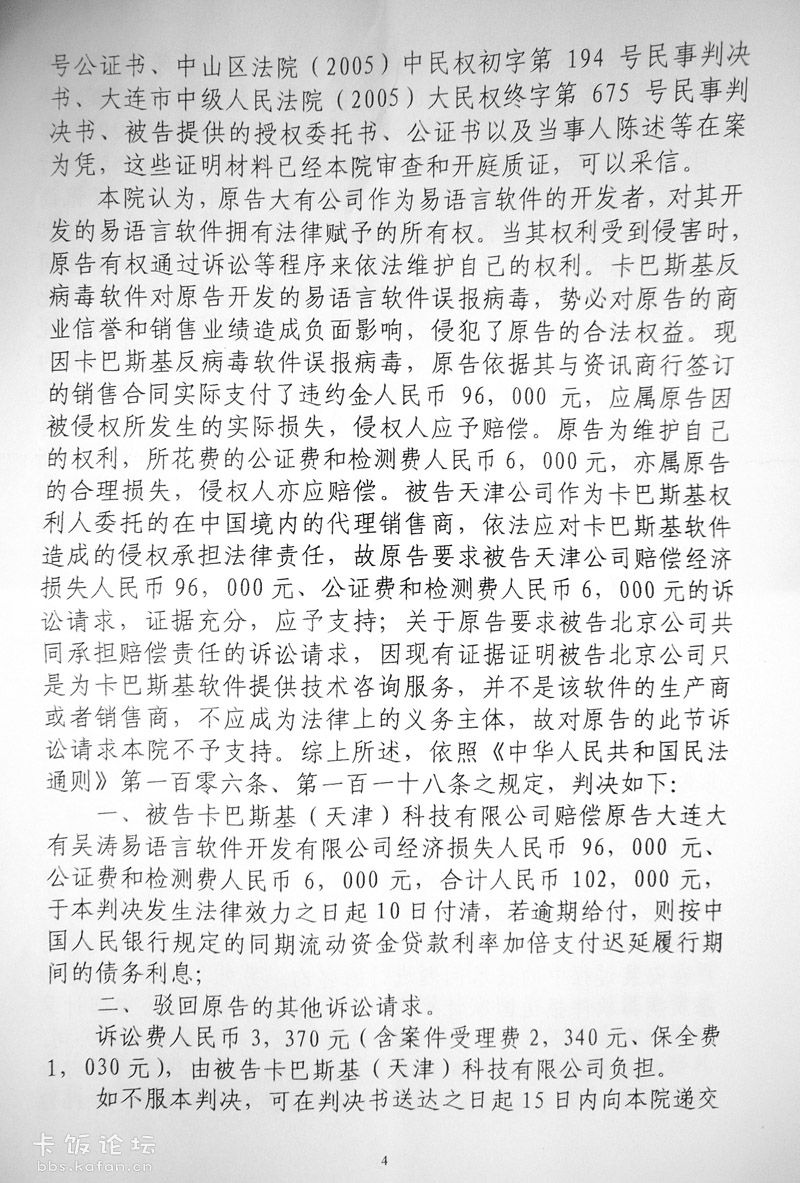 号公证书、中山区法院（2005）中民权初字第 194 号民事判决
书、大连市中级人民法院（2005）大民权终字第 675 号民事判
决书、被告提供的授权委托书、公证书以及当事人陈述等在案
为凭，这些证明材料已经本院审查和开庭质证，可以采信。
本院认为，原告大有公司作为易语言软件的开发者，对其开
发的易语言软件拥有法律赋予的所有权。当其权利受到侵害时，
原告有权通过诉讼等程序来依法维护自己的权利。卡巴斯基反
病毒软件对原告开发的易语言软件误报病毒，势必对原告的商
业信誉和销售业绩造成负面影响，侵犯了原告的合法权益。现
因卡巴斯基反病毒软件误报病毒，原告依据其与资讯商行签订
的销售合同实际支付了违约金人民币 96，000 元，应属原告因
被侵权所发生的实际损失，侵权人应予赔偿。原告为维护自己
的权利，所花费的公证费和检测费人民币 6，000 元，亦属原告
的合理损失，侵权人亦应赔偿。被告天津公司作为卡巴斯基权
利人委托的在中国境内的代理销售商，依法应对卡巴斯基软件
造成的侵权承担法律责任，故原告要求被告天津公司赔偿经济
损失人民币 96，000 元、公证费和检测费人民币 6，000 元的诉
讼请求，证据充分，应予支持；关于原告要求被告北京公司共
同承担赔偿责任的诉讼请求，因现有证据证明被告北京公司只
是为卡巴斯基软件提供技术咨询服务，并不是该软件的生产商
或者销售商，不应成为法律上的义务主体，故对原告的此节诉
讼请求本院不予支持。综上所述，依照《中华人民共和国民法
通则》第一百零六条、第一百一十八条之规定，判决如下：
一、被告卡巴斯基（天津）科技有限公司赔偿原告大连大
有吴涛易语言软件开发有限公司经济损失人民币 96，000 元、
公证费和检测费人民币 6，000 元，合计人民币 102，000 元，
于本判决发生法律效力之日起 10 日付清，若逾期给付，则按中
国人民银行规定的同期流动资金贷款利率加倍支付迟延履行期
间的债务利息；
二、驳回原告的其他诉讼请求。
诉讼费人民币 3，370 元（含案件受理费 2，340 元、保全费
1，030 元），由被告卡巴斯基（天津）科技有限公司负担。
如不服本判决，可在判决书送达之日起 15 日内向本院递交
卡饭论坛
bbs.kafan.cn
4